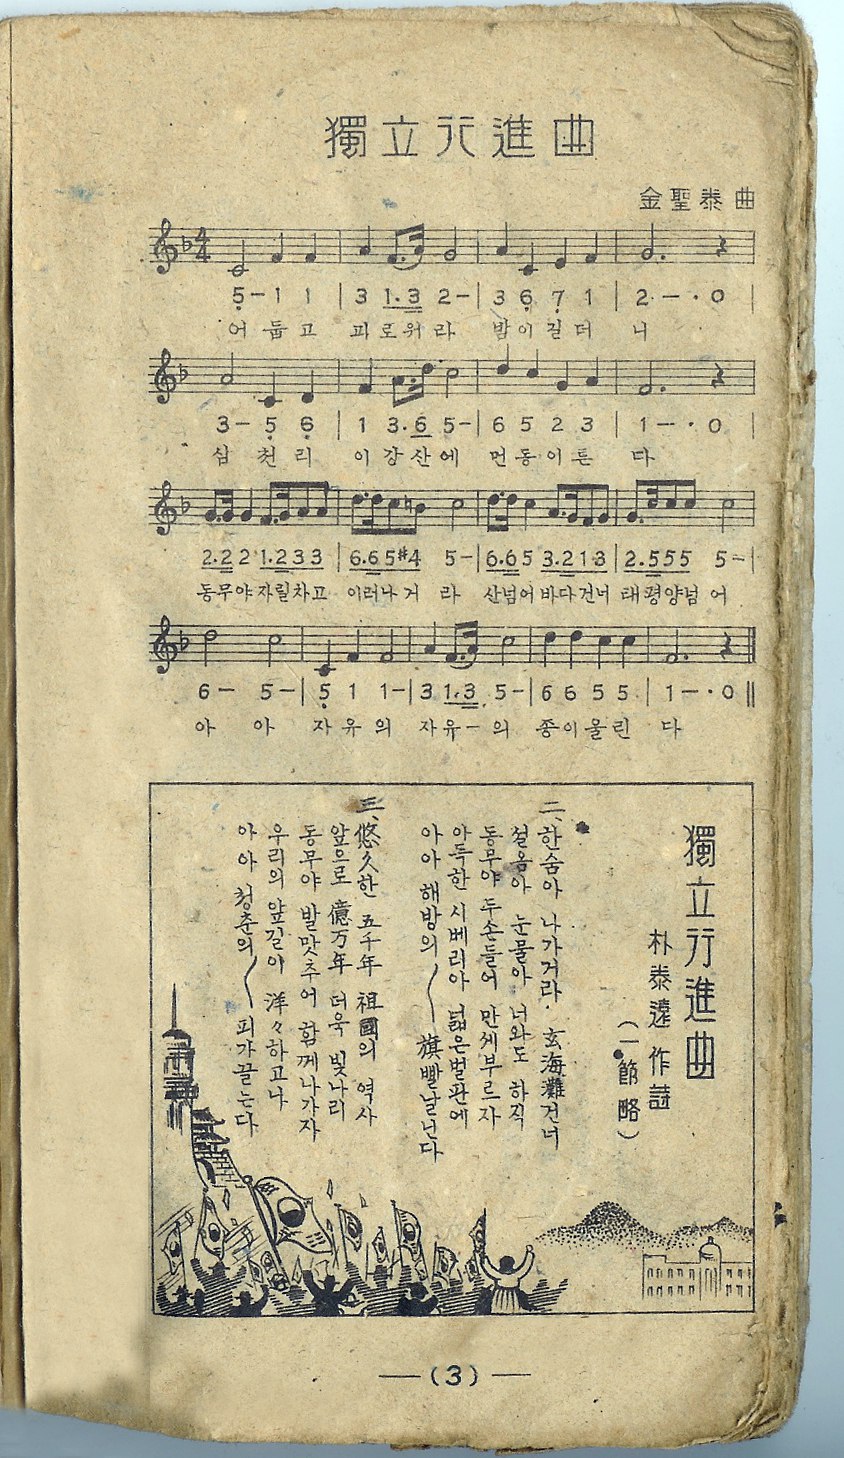 獨立行進曲
金聖泰 曲
5-1 1 | 3 1.3 2- | 3 6 7 1 | 2-·0 |
어 둡 고 괴 로 워 라 밤 이 길 더 니
3-5 6 | 1 3.6 5- | 6 5 2 3 | 1-·0 |
삼 천 리 이 강 산 에 먼 동 이 튼 다
2.2 2 1.2 3 3 | 6.6 5 #4 5- | 6.6 5 3.2 1 3 | 2.5 5 5 5- |
동무야 자릴차고 이러나거 라 산넘어 바다건너 태평양넘 어
6- 5- | 5 1 1- | 3 1.3 5- | 6 6 5 5 | 1-·0 ||
아 아 자 유 의 자 유 - 의 종 이 울 린 다
獨立行進曲
朴泰遠 作詩
(一節略)
二、한숨아 나가거라. 玄海灘건너
설음아 눈물아 너와도 하직
동무야 두손들어 만세부르자
아득한 시베리아 넓은벌판에
아아 해방의 〱 旗빨날닌다
三、悠久한 五千年 祖國의 역사
앞으로 億万年 더욱 빛나리
동무야 발맛추어 함께나가자
우리의 앞길이 洋々하고나
아아 청춘의 〱 피가끌는다
—(3)—